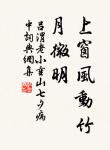 上窗風動竹
月微明
呂渭老小重山七夕病
中詞典網集